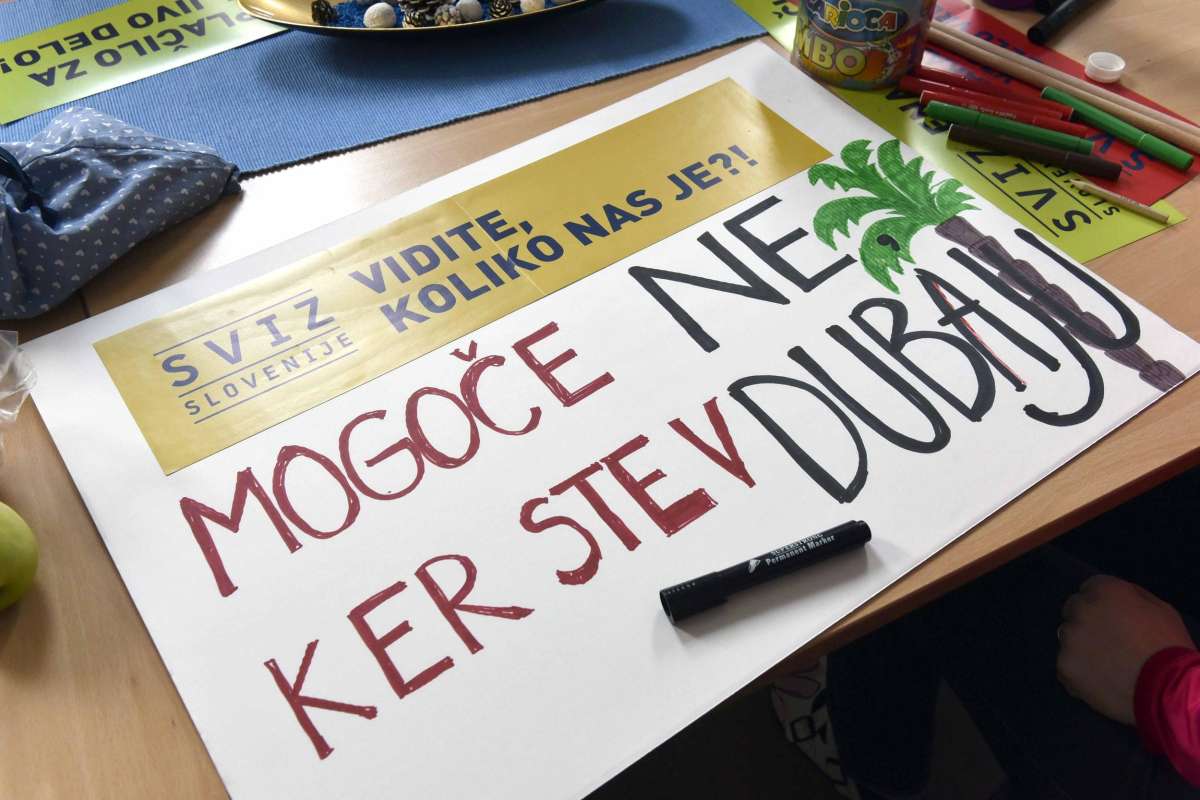 PLAČILO ZA
JIVO DELO!
CARIOCA
MBO
SVIZ
SLOVENIJE
VIDITE,
KOLIKO NAS JE?!
MOGOČE NE
KER STE V DUBAJU
SUPERSTRONG
Permanent Marker
SVIZ